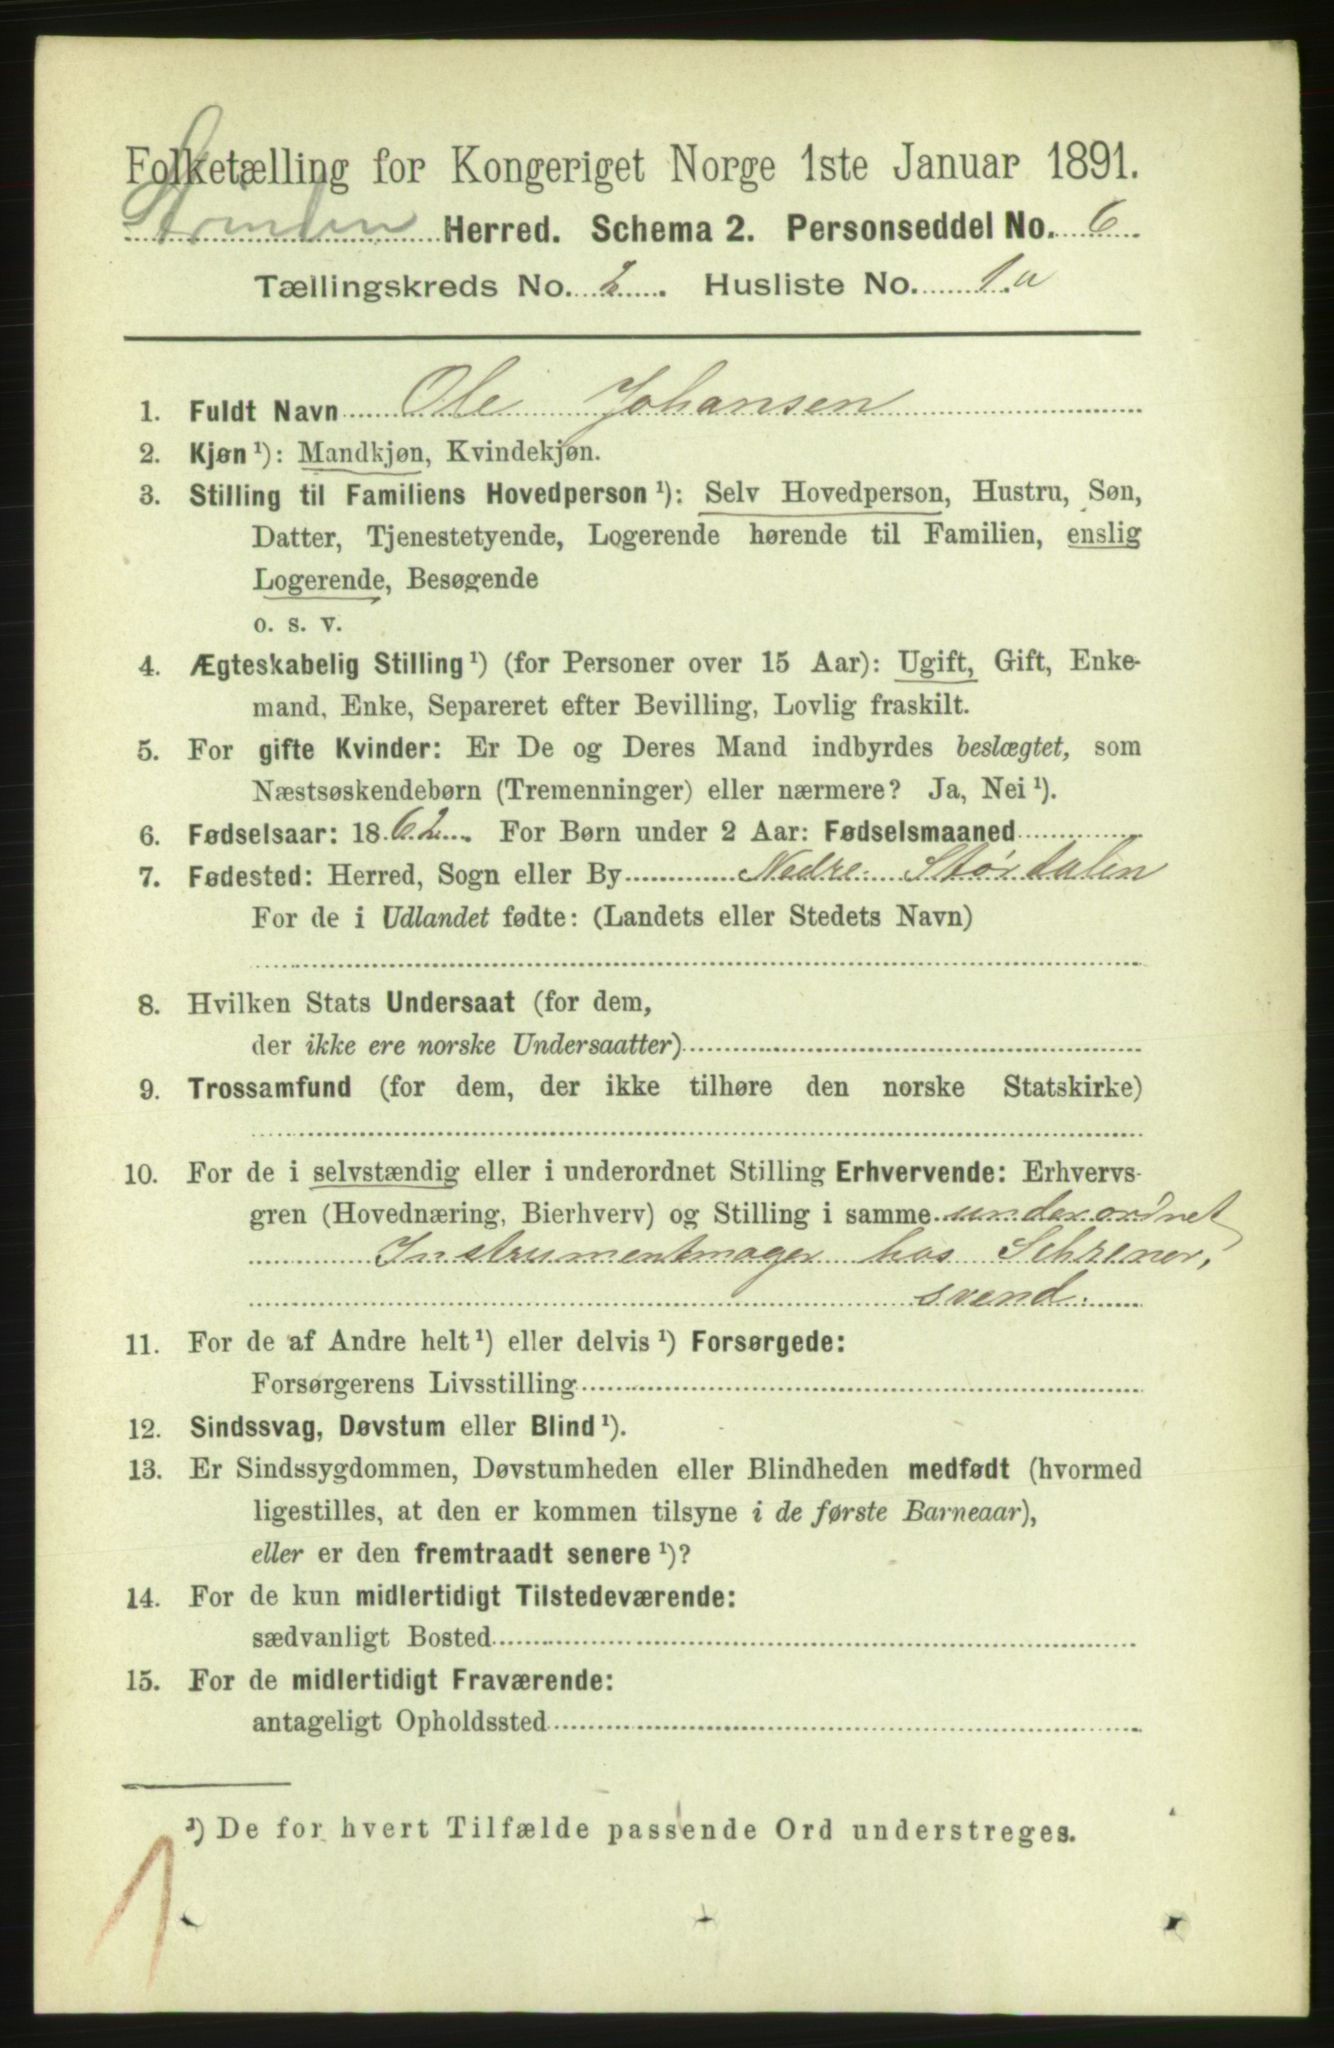 Folketælling for Kongeriget Norge 1ste Januar 1891.
Strinden Herred. Schema 2. Personseddel No. 6
Tællingskreds No. 2. Husliste No. 1a
1. Fuldt Navn Ole Johansen
2. Kjøn ¹): Mandkjøn, Kvindekjøn.
3. Stilling til Familiens Hovedperson ¹): Selv Hovedperson, Hustru, Søn,
Datter, Tjenestetyende, Logerende hørende til Familien, enslig
Logerende, Besøgende
o. s. v.
4. Ægteskabelig Stilling ¹) (for Personer over 15 Aar): Ugift, Gift, Enke-
mand, Enke, Separeret efter Bevilling, Lovlig fraskilt.
5. For gifte Kvinder: Er De og Deres Mand indbyrdes beslægtet, som
Næstsøskendebørn (Tremenninger) eller nærmere? Ja, Nei ¹).
6. Fødselsaar: 1862. For Børn under 2 Aar: Fødselsmaaned
7. Fødested: Herred, Sogn eller By Nedre Størdalen
For de i Udlandet fødte: (Landets eller Stedets Navn)
8. Hvilken Stats Undersaat (for dem,
der ikke ere norske Undersaatter)
9. Trossamfund (for dem, der ikke tilhøre den norske Statskirke)
10. For de i selvstændig eller i underordnet Stilling Erhvervende: Erhvervs-
gren (Hovednæring, Bierhverv) og Stilling i samme underordnet
Instrumentmager hos Schrener,
svend.
11. For de af Andre helt ¹) eller delvis ¹) Forsørgede:
Forsørgerens Livsstilling
12. Sindssvag, Døvstum eller Blind ¹).
13. Er Sindssygdommen, Døvstumheden eller Blindheden medfødt (hvormed
ligestilles, at den er kommen tilsyne i de første Barneaar),
eller er den fremtraadt senere ¹)?
14. For de kun midlertidigt Tilstedeværende:
sædvanligt Bosted
15. For de midlertidigt Fraværende:
antageligt Opholdssted
¹) De for hvert Tilfælde passende Ord understreges.
1